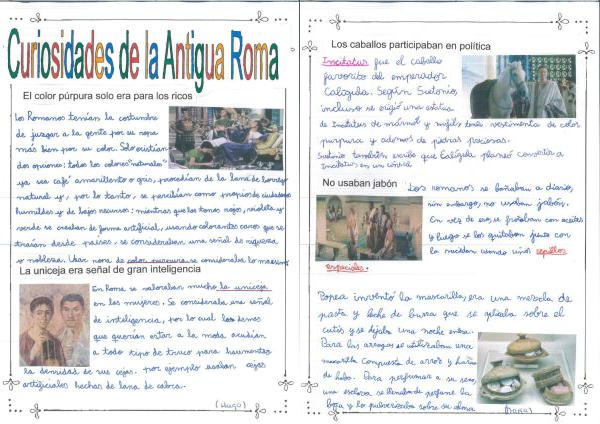 Curiosidades de la Antigua Roma
El color púrpura solo era para los ricos
Los Romanos tenían la costumbre
de juzgar a la gente por su ropa
más bien por su color. Solo existían
dos opciones: todos los colores "naturales"
ya sea café amarillento o gris, procedían de la lana de borrego
natural y, por lo tanto, se percibían como propios de ciudadanos
humildes y de bajos recursos: mientras que los tonos rojos, violeta y
verde se creaban de forma artificial, usando colorantes caros que se
traían desde países, se consideraban una señal de riqueza
o nobleza. Usar ropa de color purpura se consideraba lo máximo
La uniceja era señal de gran inteligencia
En Roma se valoraban mucho la uniceja
en las mujeres. Se consideraba una señal
de inteligencia, por lo cual las demás
que querían estar a la moda acudían
a todo tipo de truco para haumentar
la densidad de sus cejas. por ejemplo usaban cejas
artificiales hechas de lana de cabra.
(Hugo)
Los caballos participaban en política
Incitatus fue el caballo
favorito del emperador
Calígula. Según Suetonio,
incluso se erigió una estatua
de Incitatus de mármol y marfil, tenía vestimenta de color
purpura y adornos de piedras preciosas.
Suetonio también escribe que Calígula planeó convertir a
Incitatus en un cónsul
No usaban jabón
Los romanos se bañaban a diario,
sin embargo, no usaban jabón.
En vez de eso, se frotaban con aceites
y luego se los quitaban junto con
la suciedad usando unos cepillos
especiales.
Popea inventó la mascarilla, era una mezcla de
pasta y leche de burra que se aplicaba sobre el
cutis y se dejaba una noche entera.
Para las arrugas se utilizaban una
mascarilla compuesta de arroz y harina
de haba. Para perfumar a su
una esclava se llenaba de perfume la
boca y lo pulverizaba sobre su